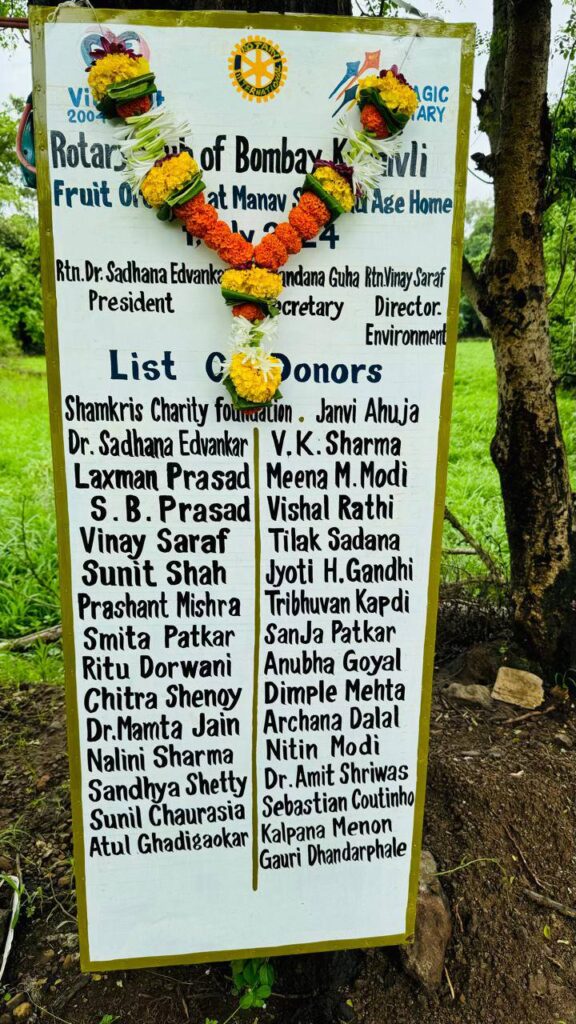 ROTARY
INTERNATIONAL
2004
AGIC
TARY
of Bombay
Fruit at Manav Age Home
24
Rtn.Dr. Sadhana Edvankar Guha Rtn.Vinay Saraf
President Director.
Environment
List Donors
Shamkris Charity foundation . Janvi Ahuja
Dr. Sadhana Edvankar V.K. Sharma
Laxman Prasad Meena M.Modi
S.B. Prasad Vishal Rathi
Vinay Saraf Tilak Sadana
Sunit Shah Jyoti H.Gandhi
Prashant Mishra Tribhuvan Kapdi
Smita Patkar SanJa Patkar
Ritu Dorwani Anubha Goyal
Chitra Shenoy Dimple Mehta
Dr.Mamta Jain Archana Dalal
Nalini Sharma Nitin Modi
Sandhya Shetty Dr.Amit Shriwas
Sunil Chaurasia Sebastian Coutinho
Atul Ghadigaokar Kalpana Menon
Gauri Dhandarphale